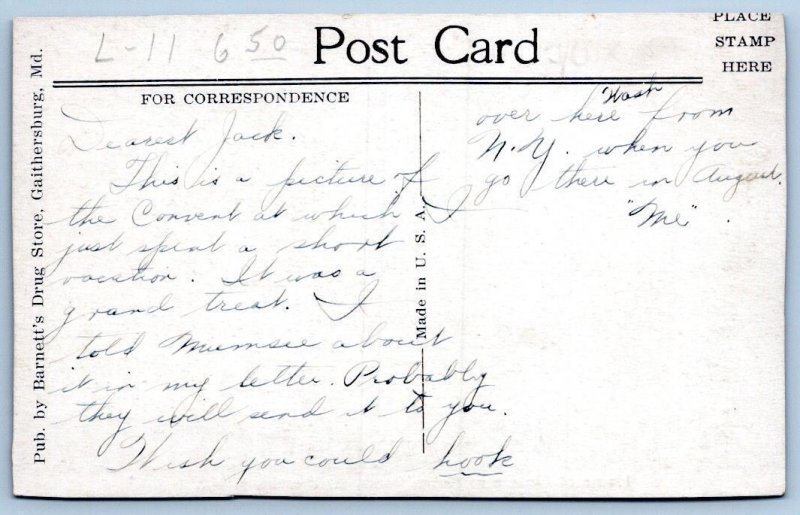 L-11 6 50
Post Card
PLACE
STAMP
HERE
FOR CORRESPONDENCE
Pub. by Barnett's Drug Store, Gaithersburg, Md.
Made in U. S. A.
Dearest Jack.
This is a picture of
the Convent at which I
just spent a short
vacation. It was a
grand treat. I
told Mumsie about
it in my letter. Probably
they will send it to you.
Wish you could hook
Wash
over here from
N.Y. when you
go there in August.
"Me".